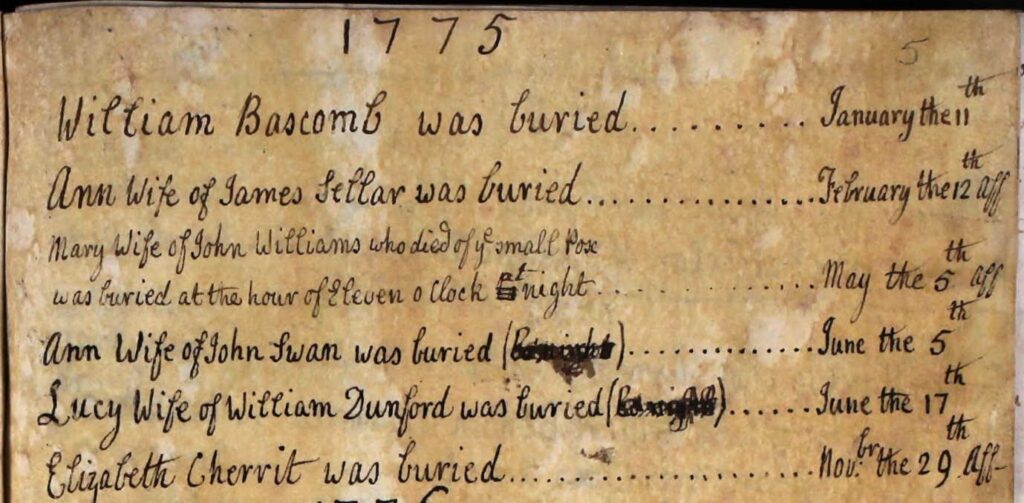 1775
5
William Bascomb was buried.......... January the 11th
Ann Wife of James Sellar was buried................ February the 12th Aff
Mary Wife of John Williams who died of ye small Pox
was buried at the hour of Eleven o Clock at night.............. May the 5th Aff
Ann Wife of John Swan was buried ( ).............. June the 5th
Lucy Wife of William Dunford was buried ( )...... June the 17th
Elizabeth Cherrit was buried...................... Novbr. the 29th Aff